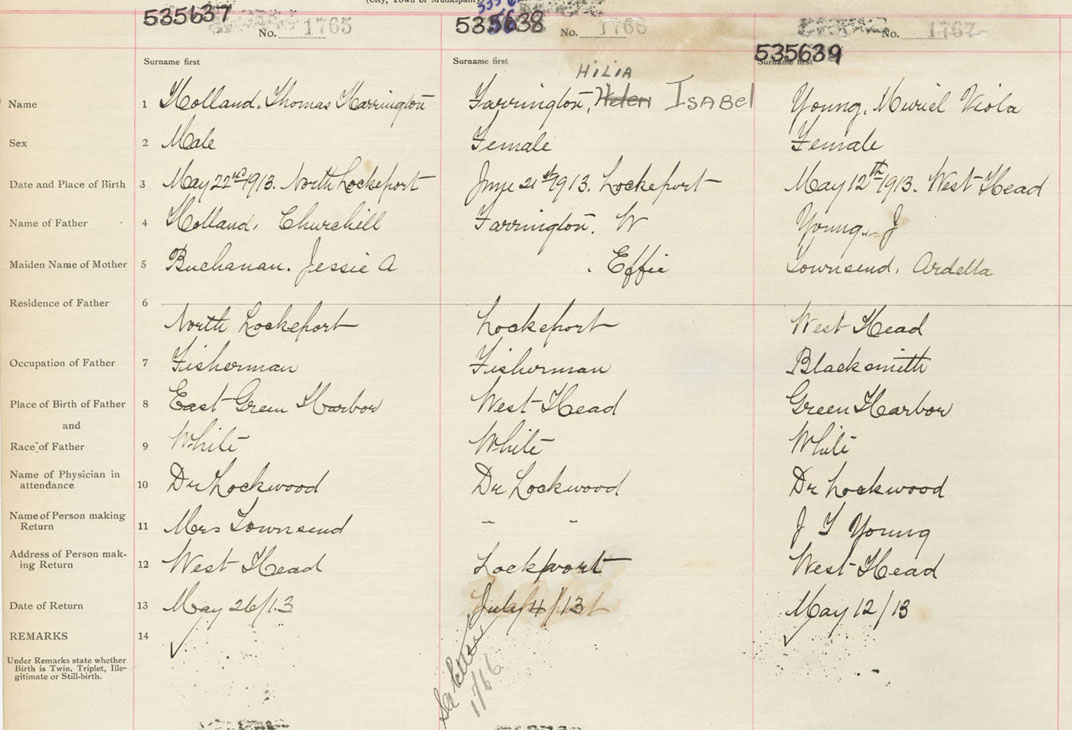 (City, Town or Municipality
535637 535638 535639
No. 1765 No. 1766 No. 1767
Surname first Surname first Surname first
HILIA
Name 1 Holland, Thomas Harrington Farrington, Helen ISABEl Young, Muriel Viola
Sex 2 Male Female Female
Date and Place of Birth 3 May 22nd 1913. North Lockeport June 21st 1913. Lockeport May 12th 1913. West Head
Name of Father 4 Holland, Churchill Farrington. W Young, J
Maiden Name of Mother 5 Buchanan. Jessie A . Effie Townsend, Ardella
Residence of Father 6
North Lockeport Lockeport West Head
Occupation of Father 7 Fisherman Fisherman Blacksmith
Place of Birth of Father 8 East Green Harbor West Head Green Harbor
and
Race of Father 9 White White White
Name of Physician in
attendance 10 Dr Lockwood Dr Lockwood Dr Lockwood
Name of Person making
Return 11 Mrs Townsend " " J T Young
Address of Person mak-
ing Return 12 West Head Lockport West Head
Date of Return 13 May 26/13 July 4/13 May 12/13
REMARKS 14 ✓ ✓
Under Remarks state whether
Birth is Twin, Triplet, Ille-
gitimate or Still-birth.
See letter
1/66